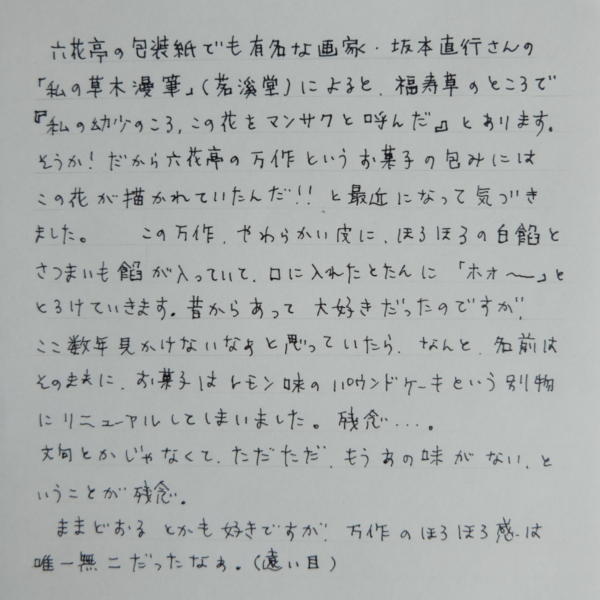 六花亭の包装紙でも有名な画家・坂本直行さんの
「私の草木漫筆」(茗溪堂)によると、福寿草のところで
『私の幼少のころ、この花をマンサクと呼んだ』とあります。
そうか！だから六花亭の万作というお菓子の包みには
この花が描かれていたんだ!! と最近になって気づき
ました。 この万作、やわらかい皮に、ほろほろの白餡と
さつまいも餡が入っていて、口に入れたとたんに「ホォ〜」と
とろけていきます。昔からあって大好きだったのですが、
ここ数年見かけないなぁと思っていたら、なんと、名前は
そのままに、お菓子はレモン味のパウンドケーキという別物
にリニューアルしてしまいました。残念‥‥。
文句とかじゃなくて、ただただ、もうあの味がない、と
いうことが残念。
ままどおるとかも好きですが、万作のほろほろ感は
唯一無二だったなぁ。(遠い目)